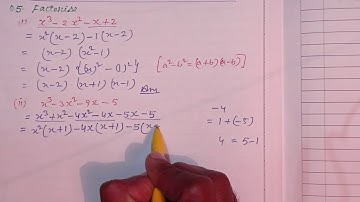 Q5. Factorise
(i) x³-2x²-x+2
= x²(x-2)-1(x-2)
= (x-2) (x²-1)
= (x-2) {(x)²-(1)²} [a²-b²=(a+b)(a-b)]
= (x-2) (x+1) (x-1) Ans
(ii) x³-3x²-9x-5
= x³+x²-4x²-4x-5x-5
= x²(x+1)-4x(x+1)-5(x
-4
= 1+(-5)
4 = 5-1